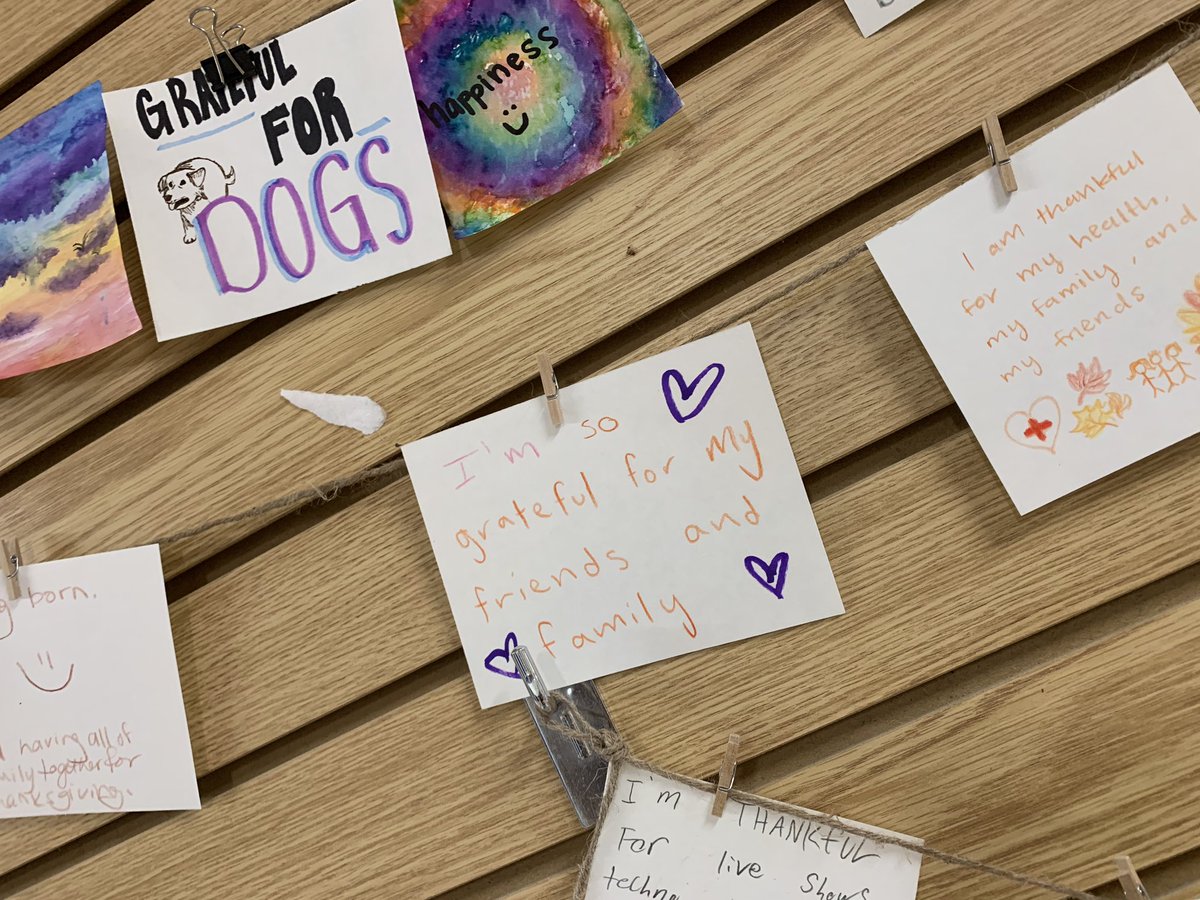 GRATEFUL
FOR
DOGS
happiness
I am thankful
for my health,
my family, and
my friends
I'm so
grateful for my
friends and
family
born.
having all of
together for
I'm THANKFUL
For live shows